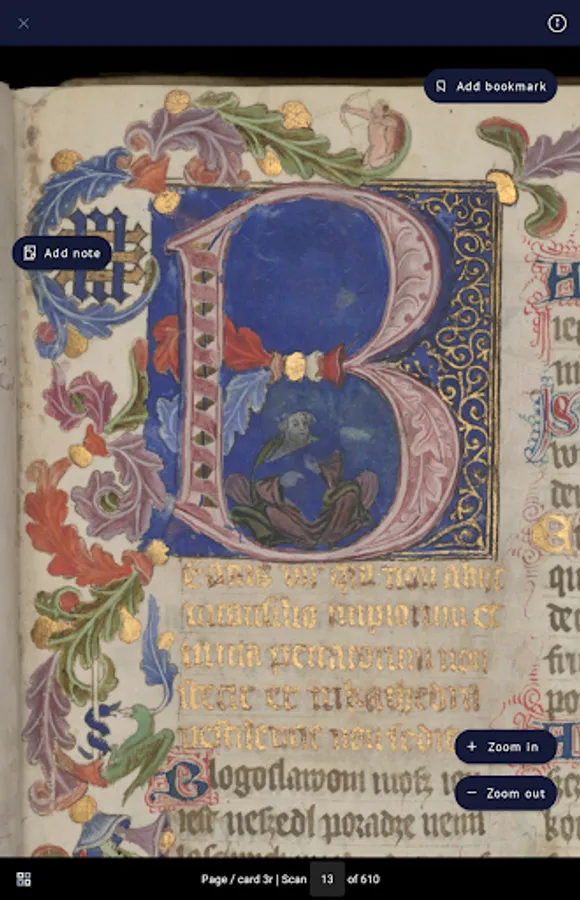 Add bookmark
Add note
B
eatus vir qui non abiit
inconsilio impiorum et
in via peccatorum non
stetit et in kathedra
pestilencie non sedi
Blogoslawoni mosz
iest neszedl poradze nemi
Zoom in
Zoom out
Page / card 3r | Scan 13 of 610